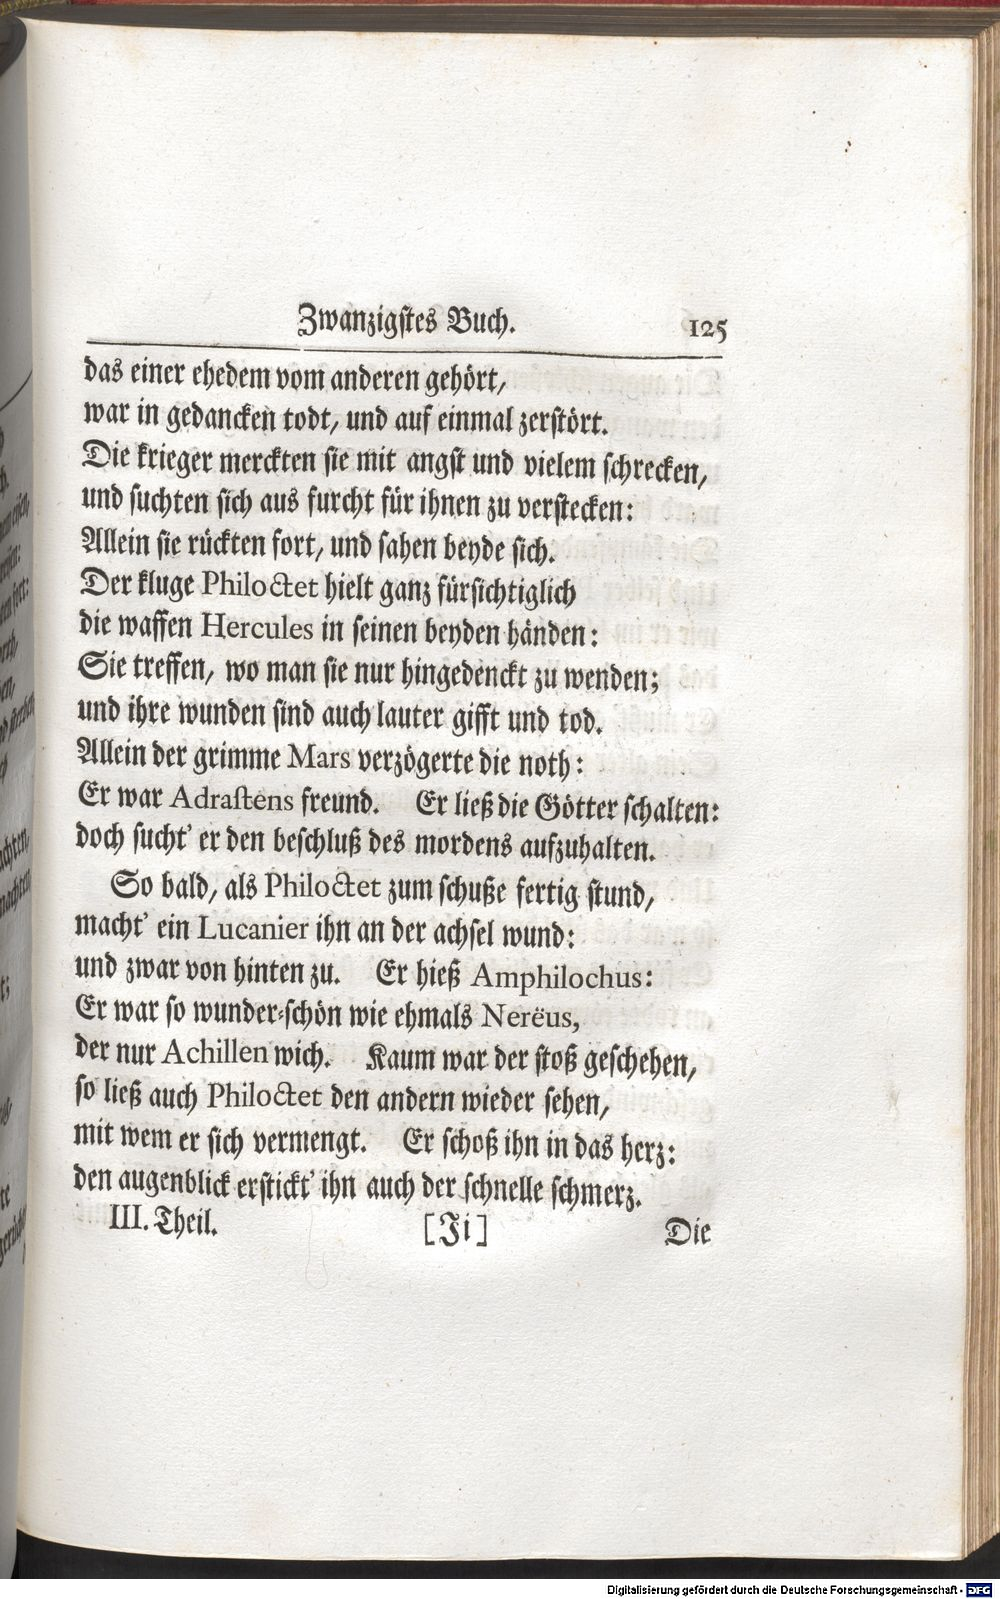 Zwanzigstes Buch. 125
das einer ehedem vom anderen gehört,
war in gedancken todt, und auf einmal zerstört.
Die krieger merckten sie mit angst und vielem schrecken,
und suchten sich aus furcht für ihnen zu verstecken:
Allein sie rückten fort, und sahen beyde sich.
Der kluge Philoctet hielt ganz fürsichtiglich
die waffen Hercules in seinen beyden händen:
Sie treffen, wo man sie nur hingedenckt zu wenden;
und ihre wunden sind auch lauter gifft und tod.
Allein der grimme Mars verzögerte die noth:
Er war Adrastens freund. Er ließ die Götter schalten:
doch sucht' er den beschluß des mordens aufzuhalten.
So bald, als Philoctet zum schuße fertig stund,
macht' ein Lucanier ihn an der achsel wund:
und zwar von hinten zu. Er hieß Amphilochus:
Er war so wunder-schön wie ehmals Nerëus,
der nur Achillen wich. Kaum war der stoß geschehen,
so ließ auch Philoctet den andern wieder sehen,
mit wem er sich vermengt. Er schoß ihn in das herz:
den augenblick erstickt' ihn auch der schnelle schmerz.
III. Theil. [Ji] Die
Digitalisierung gefördert durch die Deutsche Forschungsgemeinschaft - DFG